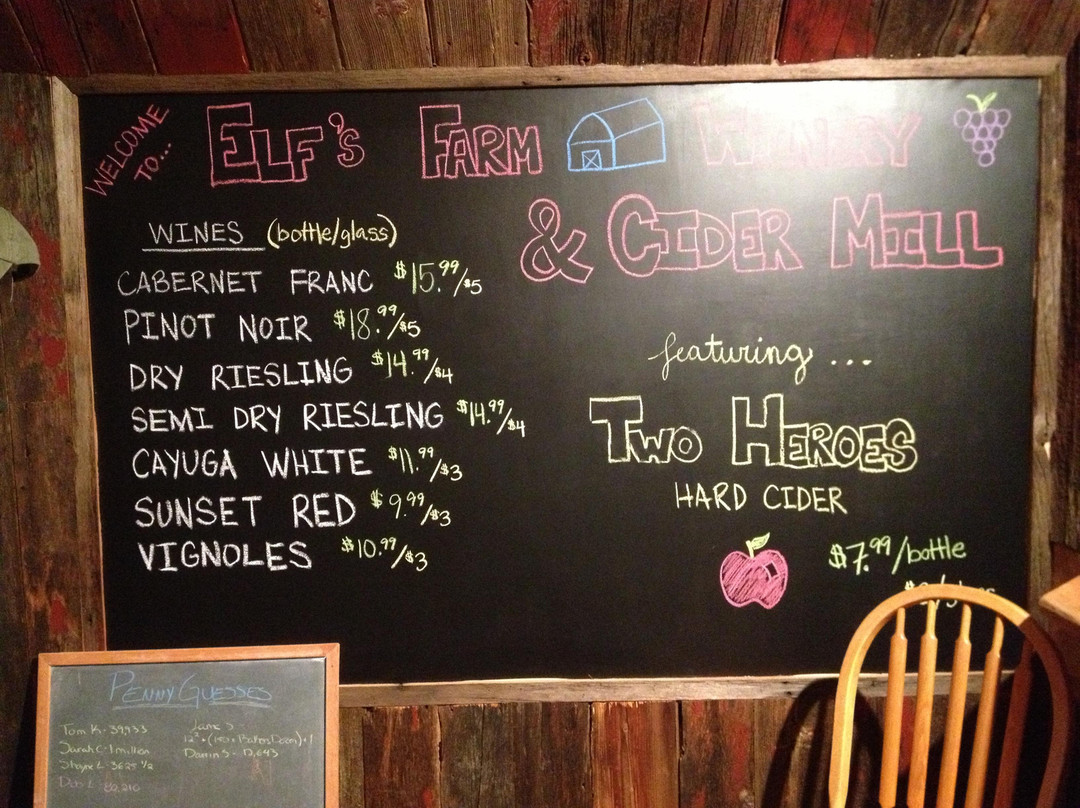 WELCOME TO...
ELF'S FARM WINERY
& CIDER MILL
WINES (bottle/glass)
CABERNET FRANC $15.99/$5
PINOT NOIR $18.99/$5
DRY RIESLING $14.99/$4
SEMI DRY RIESLING $14.99/$4
CAYUGA WHITE $11.99/$3
SUNSET RED $9.99/$3
VIGNOLES $10.99/$3
featuring ...
TWO HEROES
HARD CIDER
$7.99/bottle
PENNY GUESSES
Tom K - 39,933
Sarah C - 1 million
Shayne L - 3625 1/2
Jame
Darrin S - 12,643